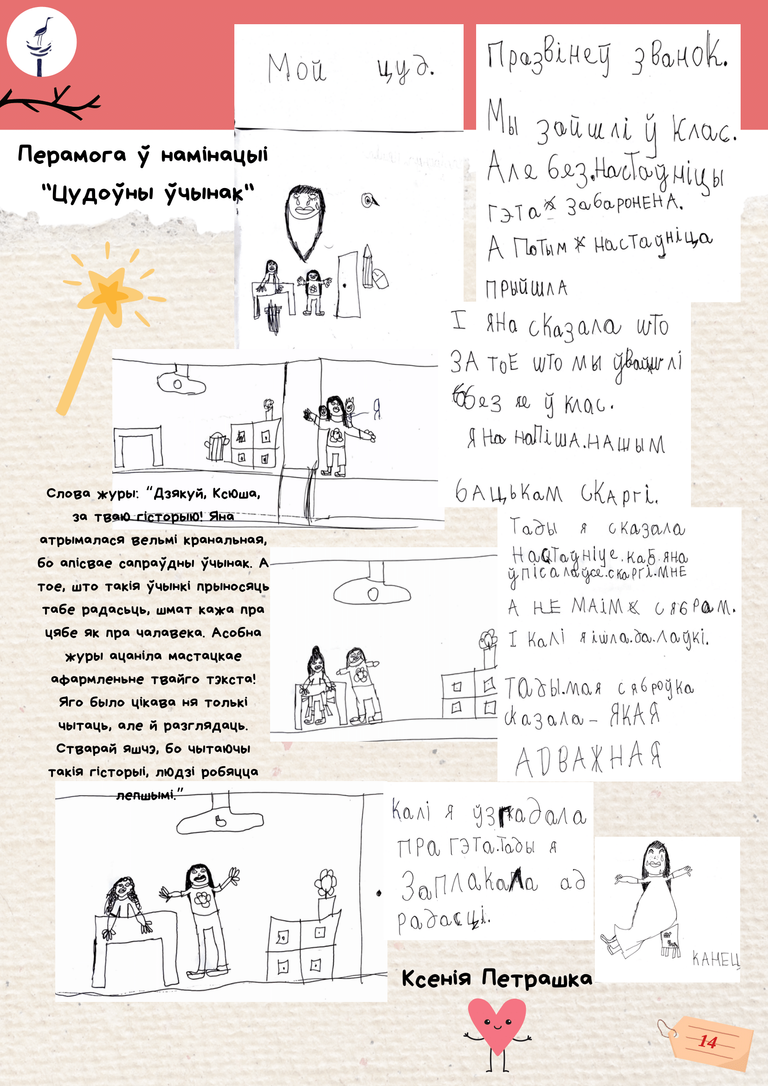 Мой цуд.
Празвінеў званок.
Мы зайшлі ў клас.
Але без.настаўніцы
гэта забаронена.
А потым настаўніца
прыйшла
І яна сказала што
за тое што мы ўвайшлі
без яе ў клас.
яна напіша.нашым
бацькам скаргі.
Тады я сказала
настаўніце.каб.яна
ўпісала ўсе.скаргі.мне
а не маім сябрам.
І калі я ішла.да.лаўкі.
Тады.мая сяброўка
сказала – якая
адважная
Калі я ўзгадала
пра гэта.тады я
заплакала ад
радасці.
канец
я
Перамога ў намінацыі
"Цудоўны ўчынак"
Слова журы: "Дзякуй, Ксюша,
за тваю гісторыю! Яна
атрымалася вельмі кранальная,
бо апісвае сапраўдны ўчынак. А
тое, што такія ўчынкі прыносяць
табе радасьць, шмат кажа пра
цябе як пра чалавека. Асобна
журы ацаніла мастацкае
афармленьне твайго тэкста!
Яго было цікава ня толькі
чытаць, але й разглядаць.
Ствaрай яшчэ, бо чытаючы
такія гісторыі, людзі робяцца
лепшымі."
Ксенія Петрашка
14